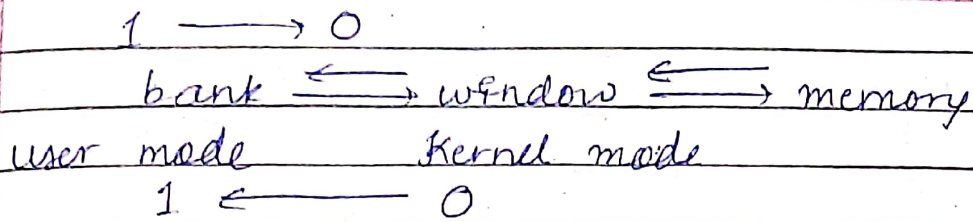 1 → 0
bank ⇄ window ⇄ memory
user mode Kernel mode
1 ← 0